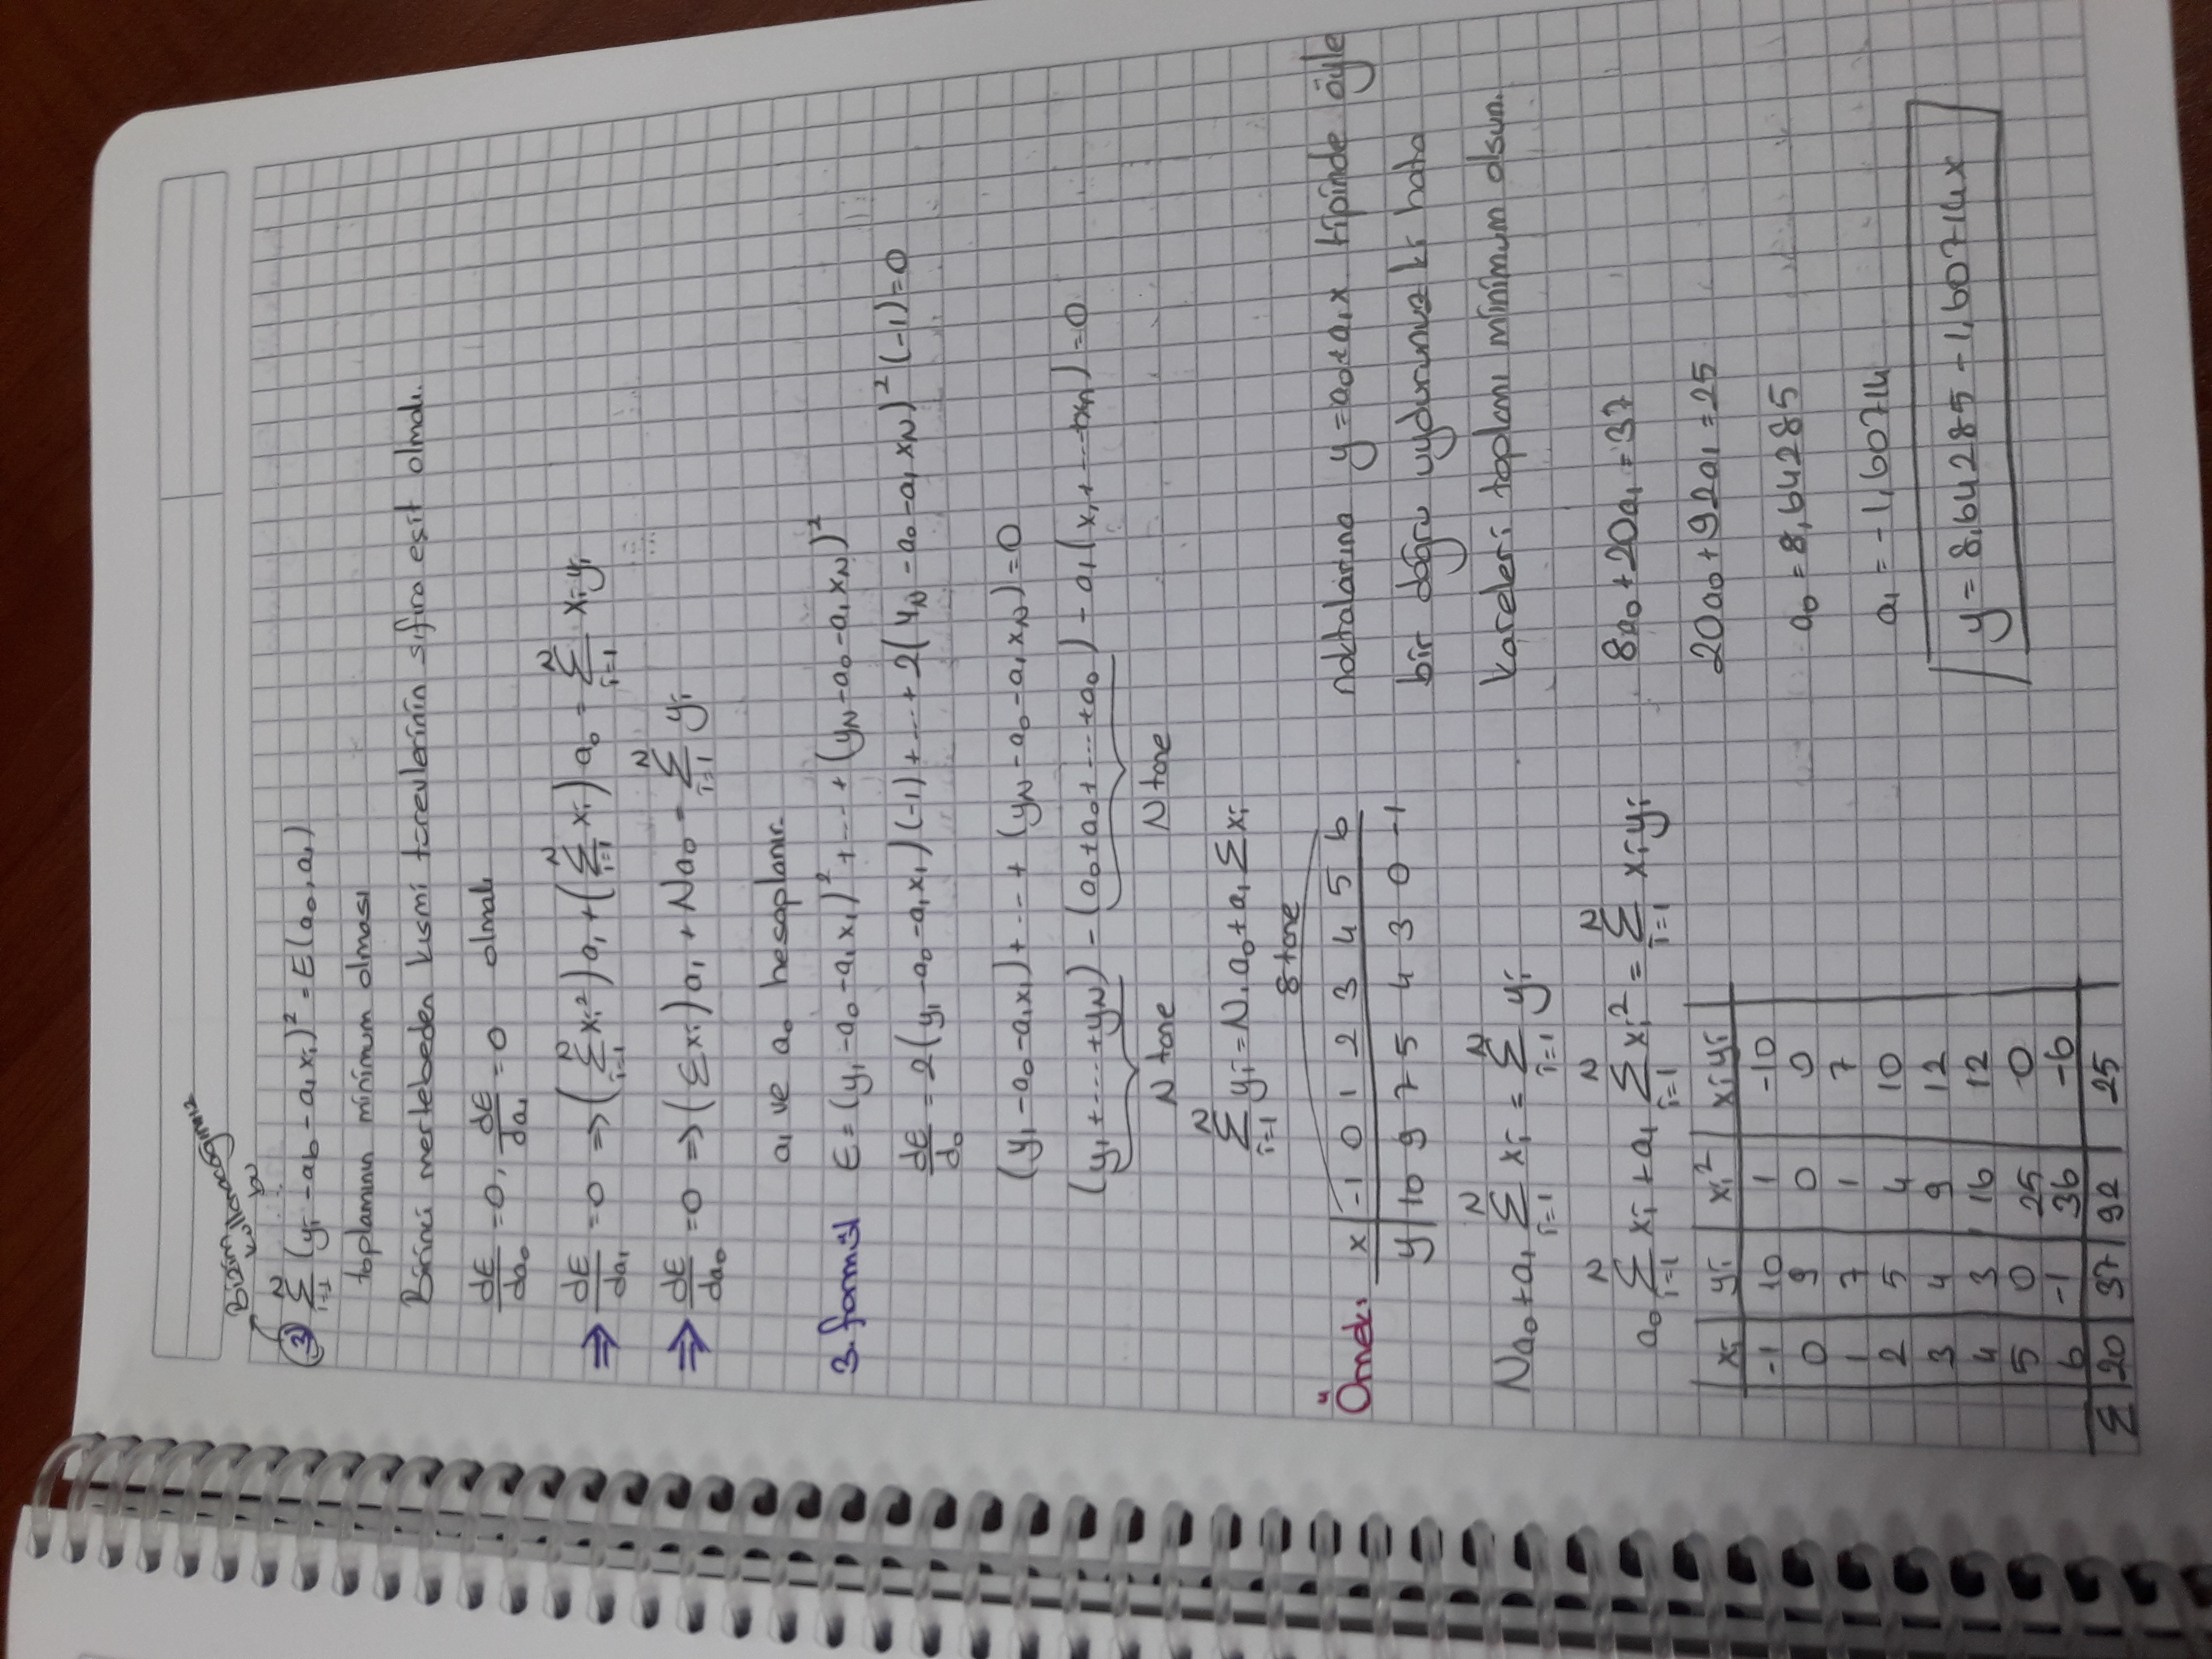 Bizim
kullanacağımız
bu
③ N∑i=1 (yi - a0 - a1xi)² = E(a0, a1)
toplamının minimum olması
Birinci mertebeden kısmi türevlerinin sıfıra eşit olmalı.
dE/da0 = 0, dE/da1 = 0 olmalı
⇒ dE/da1 = 0 ⇒ (N∑i=1 xi²) a1 + (N∑i=1 xi) a0 = N∑i=1 xi yi
⇒ dE/da0 = 0 ⇒ (∑xi) a1 + Na0 = N∑i=1 yi
a1 ve a0 hesaplanır.
3. formül E = (y1 - a0 - a1x1)² + ... + (yN - a0 - a1xN)²
dE/d0 = 2(y1 - a0 - a1x1)(-1) + ... + 2(yN - a0 - a1xN)²(-1) = 0
(y1 - a0 - a1x1) + ... + (yN - a0 - a1xN) = 0
(y1 + ... + yN) - (a0 + a0 + ... + a0) - a1(x1 + ... + xn) = 0
N tane N tane
N∑i=1 yi = N.a0 + a1 ∑xi
8 tane
Örnek: x | -1 0 1 2 3 4 5 6 noktalarına y = a0 + a1x tipinde öyle
y | 10 9 7 5 4 3 0 -1 bir doğru uydurunuz ki hata
kareleri toplamı minimum olsun.
Na0 + a1 N∑i=1 xi = N∑i=1 yi
a0 N∑i=1 xi + a1 N∑i=1 xi² = N∑i=1 xi yi
xi | yi | xi² | xi yi
-1 | 10 | 1 | -10
0 | 9 | 0 | 0
1 | 7 | 1 | 7
2 | 5 | 4 | 10
3 | 4 | 9 | 12
4 | 3 | 16 | 12
5 | 0 | 25 | 0
6 | -1 | 36 | -6
∑ | 20 | 37 | 92 | 25
8a0 + 20a1 = 37
20a0 + 92a1 = 25
a0 = 8,64285
a1 = -1,60714
y = 8,64285 - 1,60714x